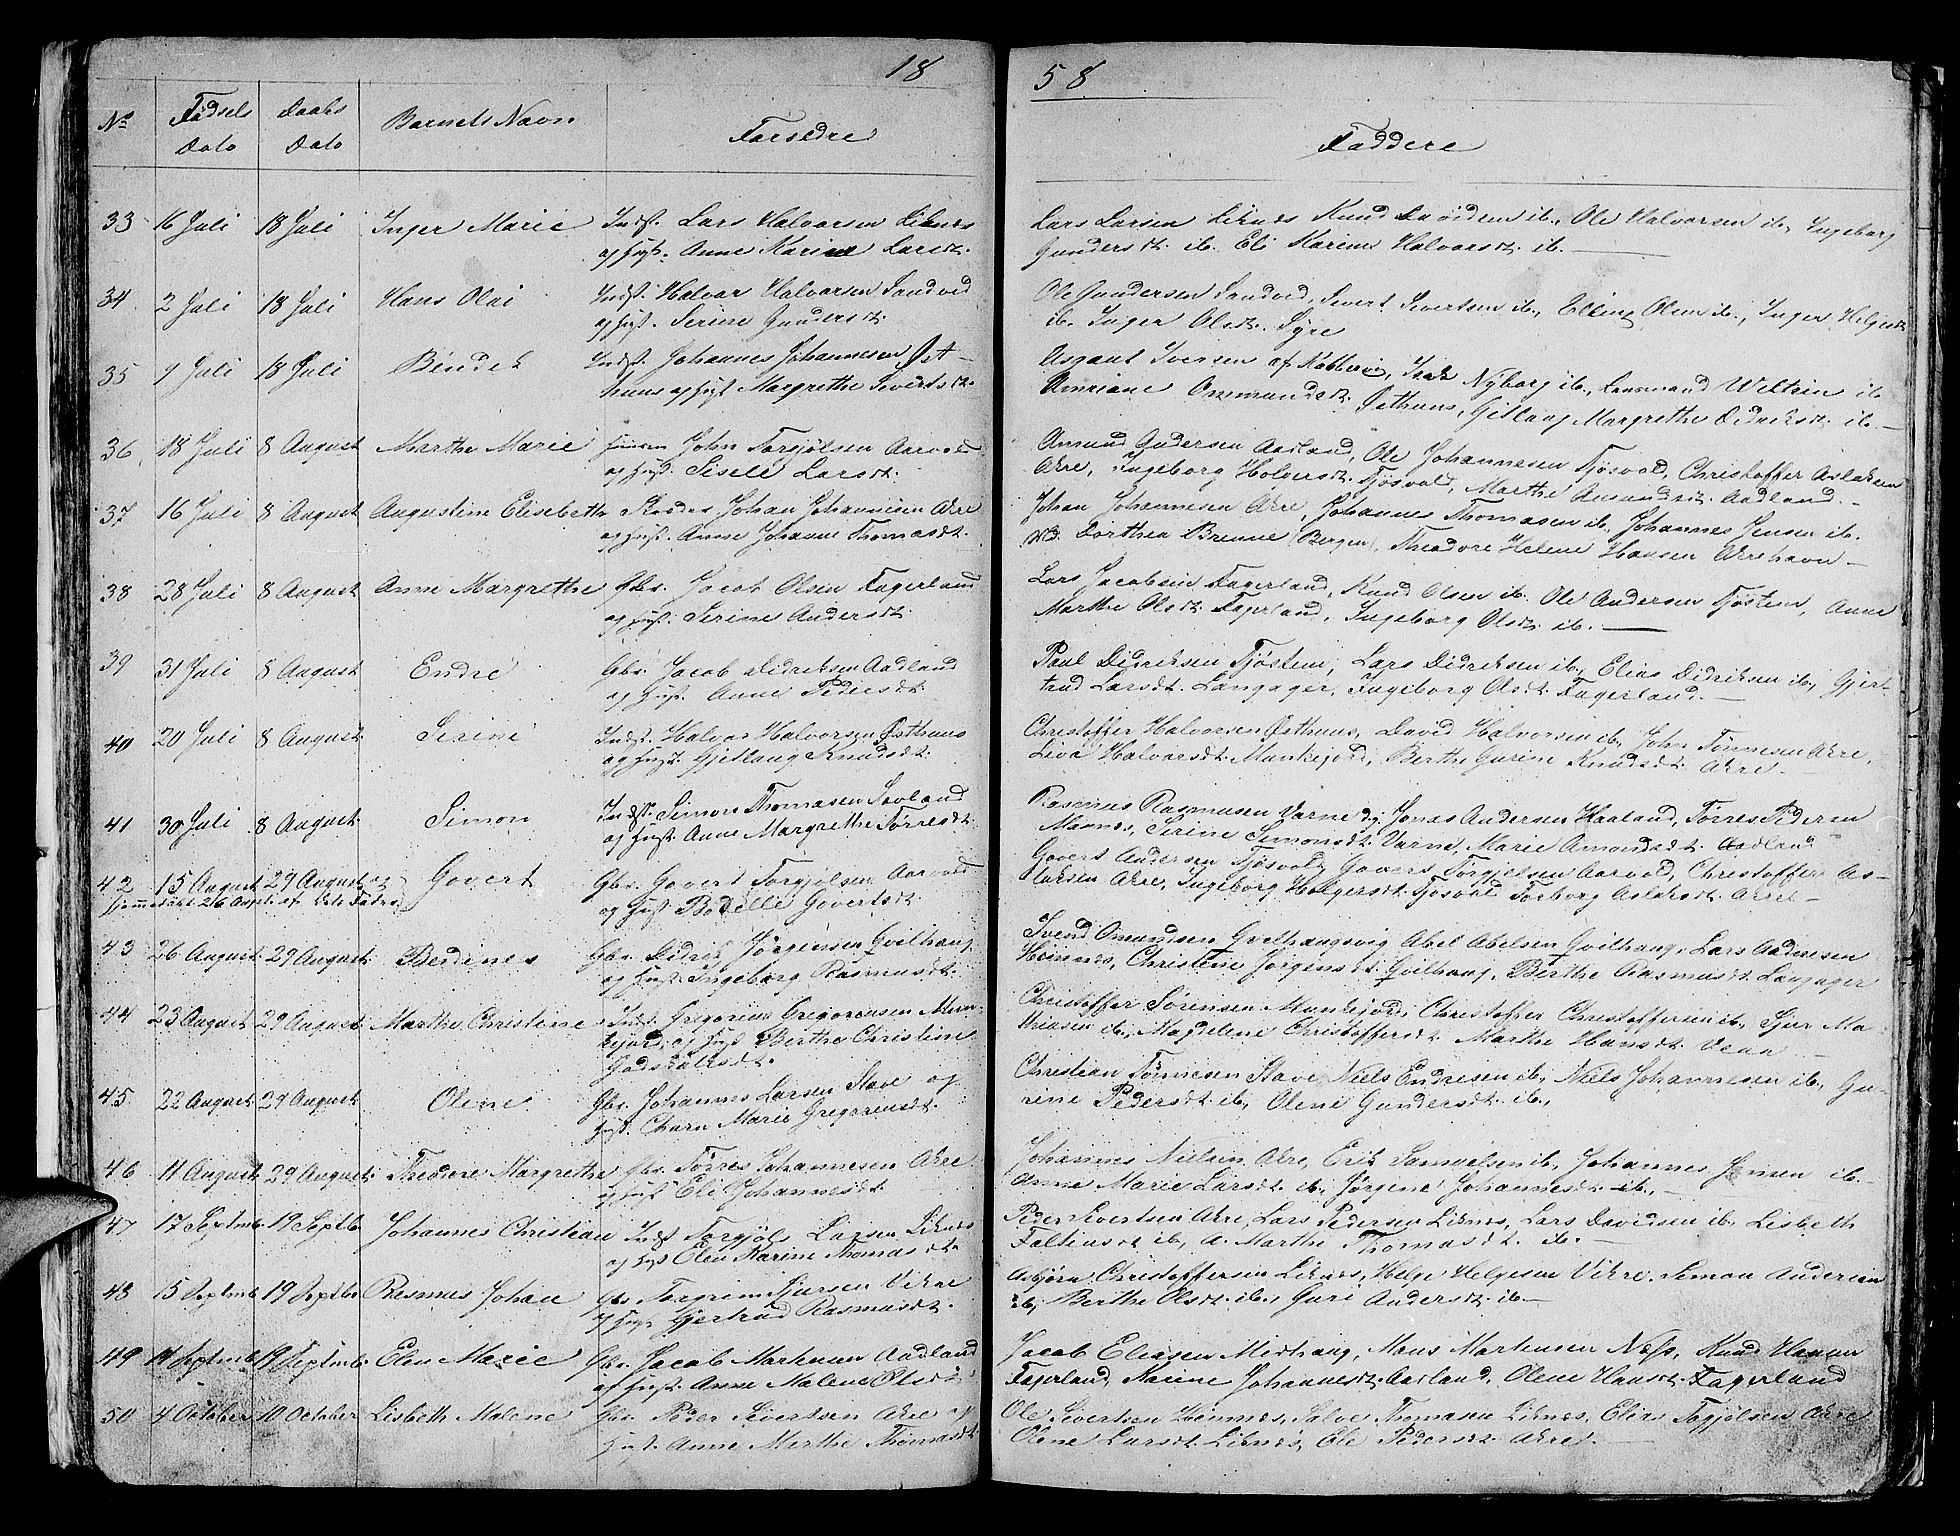 18
58
No Fødsels Dato Daabs Dato Barnets Navn Forældre Faddere
33 16 Juli 18 Juli Inger Marie Indst. Lars Halvorsen Liknes
og Hust. Anne Karine Larsdt.
Lars Larsen Liknes Knud Davidsen ib., Ole Halvorsen ib., Ingeborg
Gundersdt. ib. Eli Karine Halvorsdt. ib.
34 2 Juli 18 Juli Hans Olai Indst. Halvor Halvorsen Sandved
og Hust. Serine Gundersdt.
Ole Gundersen Sandved, Sivert Sivertsen ib., Elling Olsen ib., Inger Helgesdt.
ib. Inger Olsdt. Syre
35 9 Juli 18 Juli Bendek Indst. Johannes Johannesen Øst-
huus og Hust. Margrethe Sivertsdt.
Asgaut Iversen af Kobbervig, Isak Nyborg ib., Lensmand Weltzin ib
Anne Ommundsdt. Østhuus, Gitlaug Margrethe Didriksdt. ib.
36 18 Juli 8 August Marthe Marie John Torgjølsen Aarvold
og Hust. Sisele Larsdt.
Amund Andersen Aadland, Ole Johannesen Tjøsvold, Christoffer Aslaksen
Akre, Ingeborg Holgersdt. Tjøsvold, Marthe Amundsdt. Aadland.
37 16 Juli 8 August Augustine Elisebeth Johan Johannesen Akre
og Hust. Anne Johanne Thomasdt.
Johan Johannesen Akre, Johannes Thomasen ib., Johannes Jensen ib.
Md. Dorthea Brenne (Bergen), Theodore Helene Hansen Akrehavn
38 28 Juli 8 August Anne Margrethe Gbr. Jacob Olsen Fagerland
og Hust. Serine Andersdt
Lars Jacobsen Fagerland, Knud Olsen ib. Ole Andersen Tjøstem, Anne
Marthe Olsdt. Fagerland, Ingeborg Olsdt. ib.
39 31 Juli 8 August Endre Gbr. Jacob Didriksen Aadland
og Hust. Anne Pedersdt.
Paul Didriksen Tjøstem, Lars Didriksen ib., Elias Didriksen ib., Gjert-
rud Larsdt. Langager, Ingeborg Olsdt. Fagerland.
40 20 Juli 8 August Serine Indst. Halvor Halvorsen Østhuus
og Hust. Gjitlaug Knudsdt.
Christoffer Halvorsen Østhuus, David Halvorsen ib., John Tønnesen Akre,
Liva Halvorsdt. Munkejord, Berthe Gurine Knudsdt. Akre.
41 30 Juli 8 August Simon Indst. Simon Thomasen Sovland
og Hust. Anne Margrethe Tørresdt.
Rasmus Rasmusen Varne og Jonas Andersen Haaland, Tørres Pedersen
Mannes, Serine Simonsdt. Varne, Marie Amondsdt. Aadland
42 15 August 29 August Govert Gbr. Govert Torgjølsen Aarvold
og Hust. Bodelle Govertsdt.
Govert Andersen Tjøsvold, Govert Torgjølsen Aarvold, Christoffer As-
laksen Akre, Ingeborg Holgersdt. Tjøsvold Torborg Aslaksdt. Akre
43 26 August 29 August Berdines Gbr. Didrik Jørgensen Qvilhaug
og Hust. Ingeborg Rasmusdt.
Svend Omundsen Qvelhaugsvig Abel Abelsen Qvilhaug, Lars Andersen
Heimnes, Christine Jørgensdt. Qvilhaug, Berthe Rasmusdt. Langager
44 23 August 29 August Marthe Christine Indst. Gregorius Gregoriusen Mun-
kejord, og Hust Berthe Christine
Godskalksdt.
Christoffer Sørensen Munkejord, Christoffer Christoffersen ib., Sjur Ma-
thiasen ib., Magdelene Christoffersdt. Marthe Hansdt. Veaa
45 22 August 29 August Olene Gbr. Johannes Larsen Stave og
Hust. Charn Marie Gregoriusdt.
Christian Tønnesen Stave, Niels Endresen ib., Niels Johannesen ib., Gu-
rine Pedersdt. ib., Olene Gundersdt. ib.,
46 11 August 29 August Theodore Margrethe Gbr. Tørres Johannesen Akre
og Hust Eli Johannesdt.
Johannes Nielsen Akre, Erik Samuelsen ib., Johannes Jensen ib.
Anne Marie Larsdt. ib., Jørgine Johannesdt. ib.,
47 17 Septmb. 19 Septb. Johannes Christian Indst Torgjøls Larsen Liknes
og Hust Elen Karine Thomasdt.
Peder Sivertsen Akre, Lars Pedersen Liknes, Lars Davidsen ib. Lisbeth
Faltinsdt ib., A. Marthe Thomasdt. ib.
48 15 Septmb 19 Septbr Rasmus Johan Gbr Torgrim Sjursen Vikre
og Hust Gjertrud Rasmusdt.
Asbjørn Christoffersen Liknes, Helge Helgesen Vikre. Simon Andersen
ib., Berthe Olsdt. ib., Guri Andersdt ib.
49 14 Septmb 19 Septmb. Elen Marie Gbr. Jacob Martensen Aadland
og Hust. Anne Malene Olsdt.
Jacob Eliasen Midhaug, Mons Martensen Næss, Knud Hansen
Fagerland, Karine Johannesdt. Aadland, Olene Hansdt. Fagerland
50 4 October 10 October Lisbeth Malene Gbr. Peder Sivertsen Akre og
Hust. Anne Marthe Thomasdt.
Ole Sivertsen Heimnes, Salve Thomasen Liknes, Elias Torgjølsen Akre
Olene Larsdt. Liknes, Ole Pedersdt. Akre.